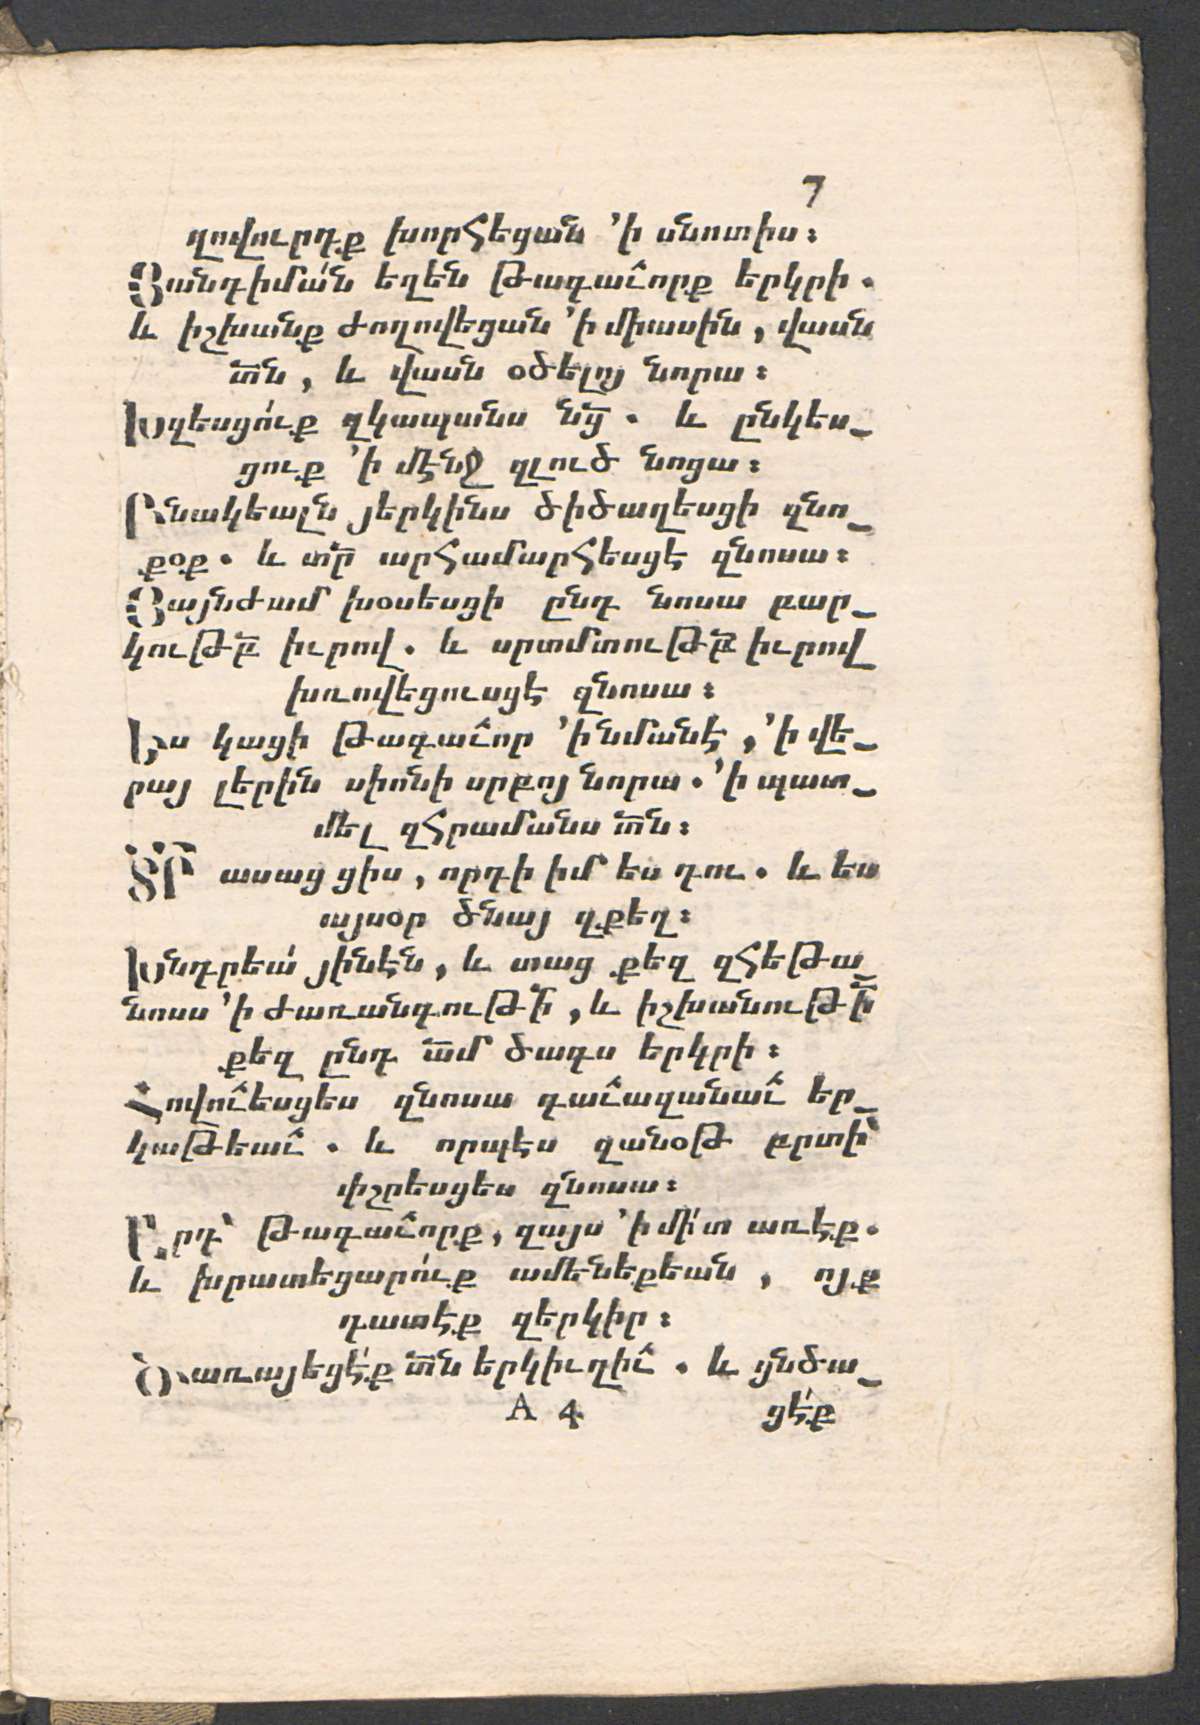 7
ղովուրդք խորհեցան ՚ի սնոտիս։
Յանդիմա՛ն եղեն թագաւ̂որք երկրի.
և իշխանք ժողովեցան ՚ի միասին, վասն
տ̅ն, և վասն օծելոյ նորա։
Խզեսցո՛ւք զկապանս նց̅. և ընկես_
ցուք ՚ի մէնջ զլուծ նոցա։
Բնակեալն յերկինս ծիծաղեսցի զնո_
քօք. և տր̅ արհամարհեսցէ զնոսա։
Յայնժամ խօսեսցի ընդ նոսա բար_
կութբ̅ իւրով. և սրտմտութբ̅ իւրով
խռովեցուսցէ զնոսա։
Ես կացի թագաւ̂որ ՚ի նմանէ, ՚ի վե_
րայ լերին սիոնի սրբոյ նորա. ՚ի պատ_
մել զհրամանս տ̅ն։
Տ̅Ր ասաց ցիս, որդի իմ ես դու. և ես
այսօր ծնայ զքեզ։
Խնդրեա՛ յինէն, և տաց քեզ զհեթա_
նոսս ՚ի ժառանգութի̅, և իշխանութի̅
քեզ ընդ ա̅մ ծագս երկրի։
Հովու̂եսցես զնոսա գաւ̂ազանաւ̂ եր_
կաթեաւ̂. և որպէս զանօթ բրտի՝
փշրեսցես զնոսա։
Արդ՝ թագաւ̂որք, զայս ՚ի մի՛տ առէք.
և խրատեցարո՛ւք ամենեքեան, ոյք
դատէք զերկիր։
Ծառայեցէ՛ք տ̅ն երկիւղիւ̂. և ցնծա_
A 4 ցէ՛ք